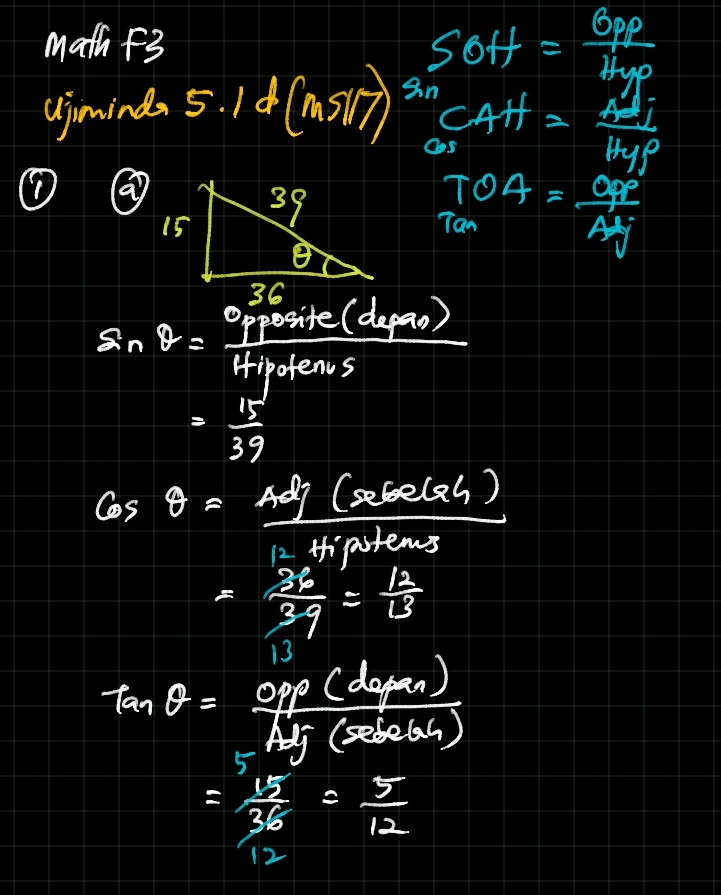 Math F3
Ujiminda 5.1d (ms117)
SOH = Opp / Hyp
Sin
CAH = Adj / Hyp
Cos
TOA = Opp / Adj
Tan
① ⓐ
15
39
θ
36
Sin θ = Opposite (depan) / Hipotenus
= 15 / 39
Cos θ = Adj (sebelah) / Hipotenus
12
= 36 / 39 = 12 / 13
13
Tan θ = Opp (depan) / Adj (sebelah)
5
= 15 / 36 = 5 / 12
12